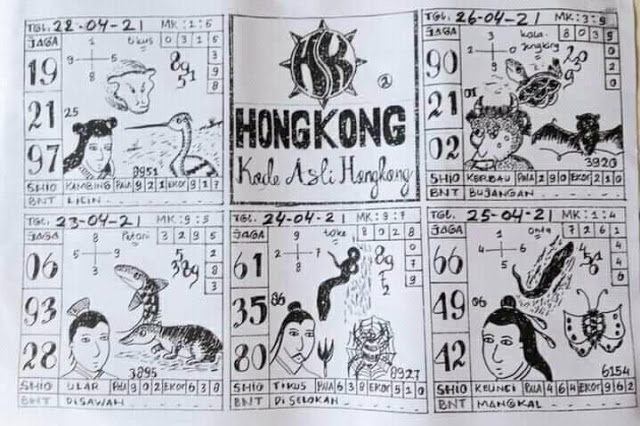 TGL. 22-04-21 MK:1:5
JAGA 1 tikus 0 3 1 5
9 5
8
3
9
8
19
21
97
25
8951
SHIO KAMBING PALA 9 2 1 EKOR 9 1 7
BNT LICIN
HSK
2
HONGKONG
Kode Asli Hongkong
TGL. 26-04-21 MK:3:9
JAGA 3 kala jengking 8 0 3 5
2 0
9
0
2
0
90
21
02
01
3920
SHIO KERBAU PALA 2 9 0 EKOR 2 1 0
BNT BUJANGAN
TGL. 23-04-21 MK:9:5
JAGA 8 Petani 3 2 9 5
5 3
9
3
8
9
06
93
28
3895
SHIO ULAR PALA 9 0 2 EKOR 6 3 8
BNT DISAWAH
TGL. 24-04-21 MK:9:7
JAGA 9 toke 8 0 2 8
2 7
8
0
7
9
61
35
80
86
8927
SHIO TIKUS PALA 6 3 8 EKOR 5 1 0
BNT DI SELOKAN
TGL. 25-04-21 MK:1:4
JAGA 1 onta 7 2 6 1
4 5
6
4
6
66
49
42
06
6154
SHIO KELINCI PALA 4 6 4 EKOR 9 6 2
BNT MANGKAL